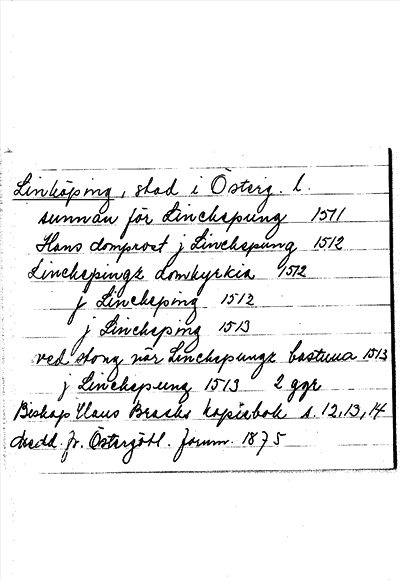 Linköping, stad i Österg. l.
sunnan för Linchepung 1511
Hans domprost j Linchepung 1512
Linchepungx domkyrkia 1512
j Lincheping 1512
j Linchöping 1513
ved stong när Linchepungx bastuua 1513
j Linchepung 1513 2 ggr
Biskop Hans Brasks kopiebok s. 12, 13, 14
Medd. fr. Östergötl. fornm. 1875